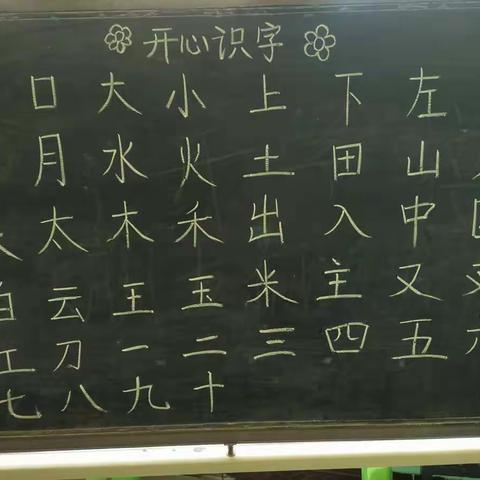 开心识字
口 大 小 上 下 左
月 水 火 土 田 山
太 木 禾 出 入 中
白 云 王 玉 米 主 又
工 刀 一 二 三 四 五 六
七 八 九 十